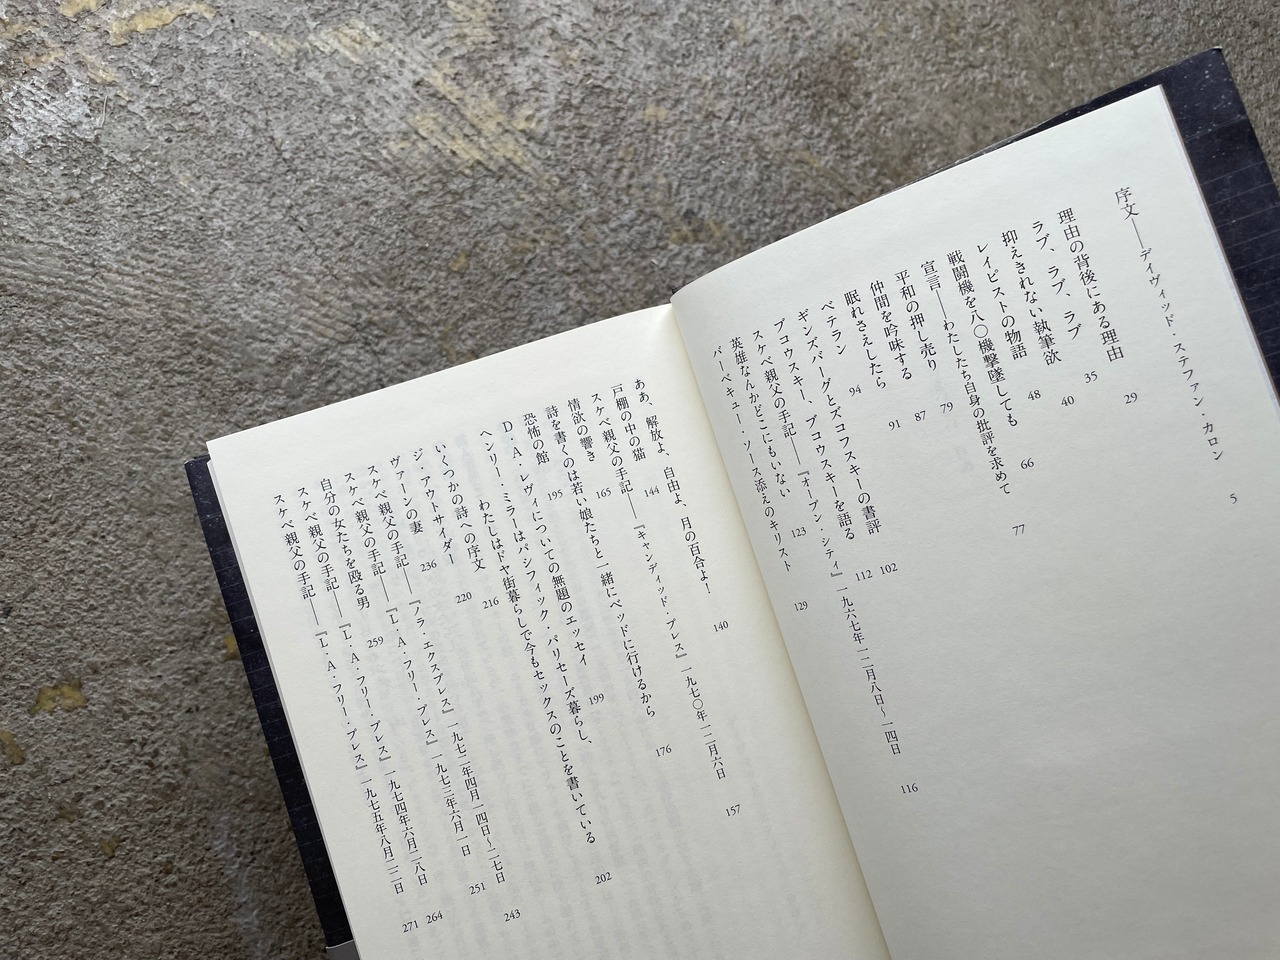 序文――デイヴィッド・ステファン・カロン 5
理由の背後にある理由 29
ラブ、ラブ、ラブ 35
抑えきれない執筆欲 40
レイピストの物語 48
戦闘機を八〇機撃墜しても 66
宣言――わたしたち自身の批評を求めて 77
平和の押し売り 79
仲間を吟味する 87
眠れさえしたら 91
ベテラン 94
ギンズバーグとズコフスキーの書評 102
ブコウスキー、ブコウスキーを語る 112
スケベ親父の手記――『オープン・シティ』一九六七年一二月八日～一四日 116
英雄なんかどこにもいない 123
バーベキュー・ソース添えのキリスト 129
ああ、解放よ、自由よ、月の百合よ! 140
戸棚の中の猫 144
スケベ親父の手記――『キャンディッド・プレス』一九七〇年一二月六日 157
情欲の響き 165
詩を書くのは若い娘たちと一緒にベッドに行けるから 176
恐怖の館 195
D・A・レヴィについての無題のエッセイ 199
ヘンリー・ミラーはパシフィック・パリセーズ暮らし、
わたしはドヤ街暮らしで今もセックスのことを書いている 202
いくつかの詩への序文 216
ジ・アウトサイダー 220
ヴァーンの妻 236
スケベ親父の手記――『ノラ・エクスプレス』一九七二年四月一四日～二七日 243
スケベ親父の手記――『L・A・フリー・プレス』一九七三年六月一日 251
自分の女たちを殴る男 259
スケベ親父の手記――『L・A・フリー・プレス』一九七四年六月二八日 264
スケベ親父の手記――『L・A・フリー・プレス』一九七五年八月二二日 271